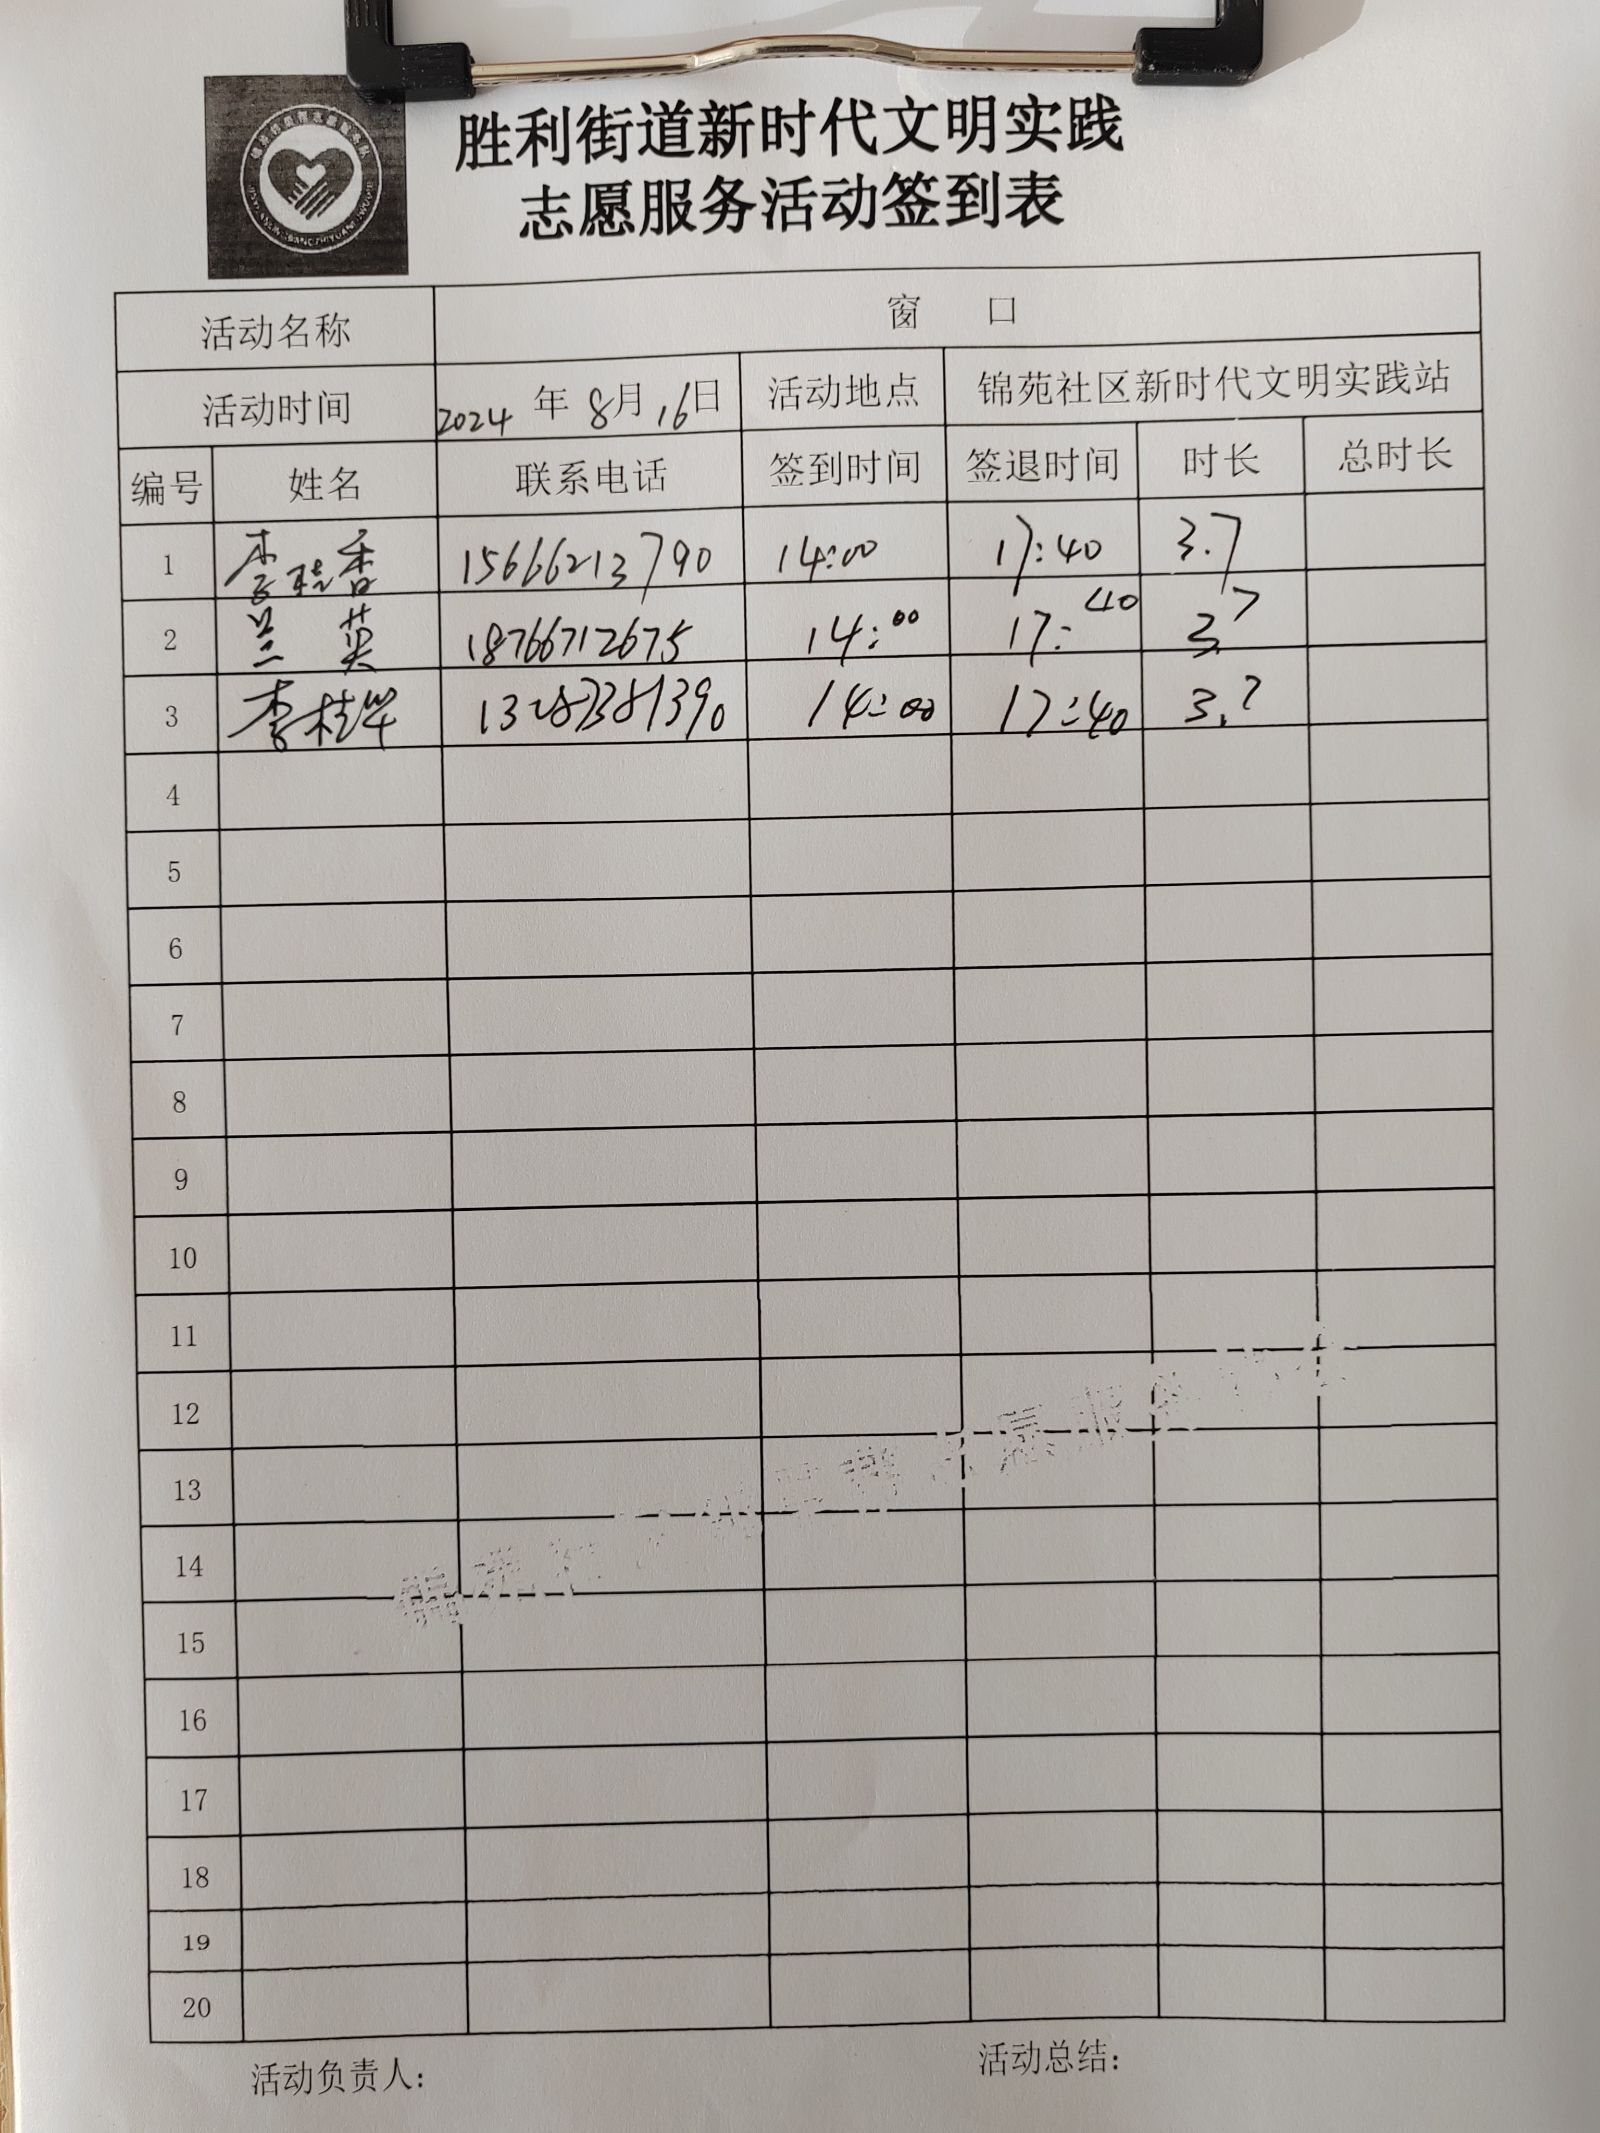 胜利街道新时代文明实践
志愿服务活动签到表
活动名称 窗 口
活动时间 2024 年 8月 16日 活动地点 锦苑社区新时代文明实践站
编号 姓名 联系电话 签到时间 签退时间 时长 总时长
1 李桂香 15666213790 14:00 17:40 3.7
2 兰英 18766712675 14:00 17:40 3.7
3 李桂华 13287381390 14:00 17:40 3.7
4
5
6
7
8
9
10
11
12
13
14
15
16
17
18
19
20
活动负责人: 活动总结: